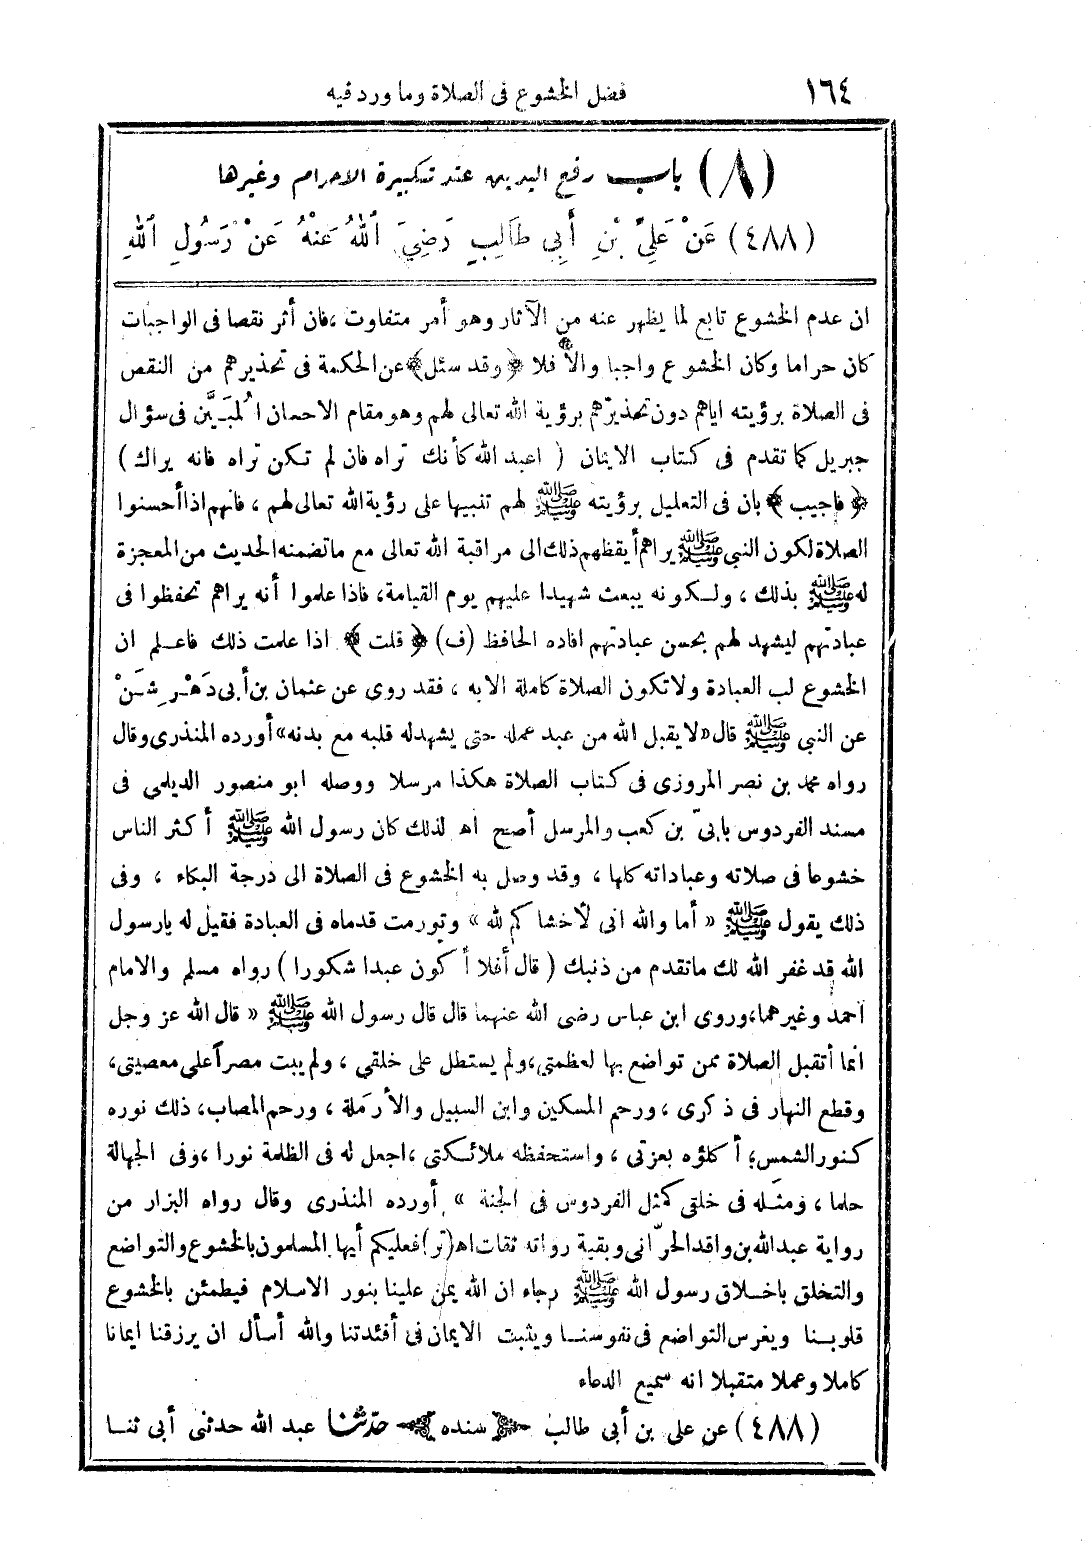 ١٦٤ فضل الخشوع فى الصلاة وما ورد فيه
(٨) باب رفع اليدين عند تكبيرة الاحرام وغيرها
(٤٨٨) عَنْ عَلِيِّ بْنِ أَبِي طَالِبٍ رَضِيَ اللهُ عَنْهُ عَنْ رَسُولِ اللهِ
ان عدم الخشوع تابع لما يظهر عنه من الآثار وهو أمر متفاوت ،فان أثر نقصا فى الواجبات
كان حراما وكان الخشوع واجبا والاّ فلا ﴿وقد سئل﴾ عن الحكمة فى تحذيرهم من النقص
فى الصلاة برؤيته اياهم دون تحذيرهم برؤية الله تعالى لهم وهو مقام الاحسان المُبَيَّن فى سؤال
جبريل كما تقدم فى كتاب الايمان ( اعبد الله كأنك تراه فان لم تكن تراه فانه يراك )
﴿فاجيب﴾ بان فى التعليل برؤيته ﷺ لهم تنبيها على رؤية الله تعالى لهم ، فانهم اذا أحسنوا
الصلاة لكون النبي ﷺ يراهم أيقظهم ذلك الى مراقبة الله تعالى مع ماتضمنه الحديث من المعجزة
له ﷺ بذلك ، ولكونه يبعث شهيدا عليهم يوم القيامة، فاذا علموا أنه يراهم تحفظوا فى
عبادتهم ليشهد لهم بحسن عبادتهم افاده الحافظ (ف) ﴿ قلت ﴾ اذا علمت ذلك فاعلم ان
الخشوع لب العبادة ولا تكون الصلاة كاملة الا به ، فقد روى عن عثمان بن أبى دَهْرِشَنْ
عن النبي ﷺ قال «لا يقبل الله من عبد عمله حتى يشهد له قلبه مع بدنه» أورده المنذرى وقال
رواه محمد بن نصر المروزى فى كتاب الصلاة هكذا مرسلا ووصله ابو منصور الديلمى فى
مسند الفردوس بابىّ بن كعب والمرسل أصح اهـ لذلك كان رسول الله ﷺ أكثر الناس
خشوعا فى صلاته وعباداته كلها ، وقد وصل به الخشوع فى الصلاة الى درجة البكاء ، وفى
ذلك يقول ﷺ « أما والله انى لأخشاكم لله » وتورمت قدماه فى العبادة فقيل له يارسول
الله قد غفر الله لك ماتقدم من ذنبك ( قال أفلا أكون عبدا شكورا ) رواه مسلم والامام
احمد وغيرهما،وروى ابن عباس رضى الله عنهما قال قال رسول الله ﷺ « قال الله عز وجل
انما أتقبل الصلاة ممن تواضع بها لعظمتى،ولم يستطل على خلقي ، ولم يبت مصراً على معصيتى،
وقطع النهار فى ذكرى ،ورحم المسكين وابن السبيل والأرملة ، ورحم المصاب، ذلك نوره
كنور الشمس؛ أكلؤه بعزتى ، واستحفظه ملائكتى ،اجعل له فى الظلمة نورا ،وفى الجهالة
حلما ، ومثله فى خلقى كمثل الفردوس فى الجنة » أورده المنذرى وقال رواه البزار من
رواية عبدالله بن واقد الحرّانى وبقية رواته ثقات اهـ (تر) فعليكم أيها المسلمون بالخشوع والتواضع
والتخلق باخلاق رسول الله ﷺ رجاء ان الله يمن علينا بنور الاسلام فيطمئن بالخشوع
قلوبنا ويغرس التواضع فى نفوسنا ويثبت الايمان فى أفئدتنا والله أسأل ان يرزقنا ايمانا
كاملا وعملا متقبلا انه سميع الدعاء
(٤٨٨) عن على بن أبى طالب ﴿سنده﴾ حدّثنا عبد الله حدثنى أبى ثنا